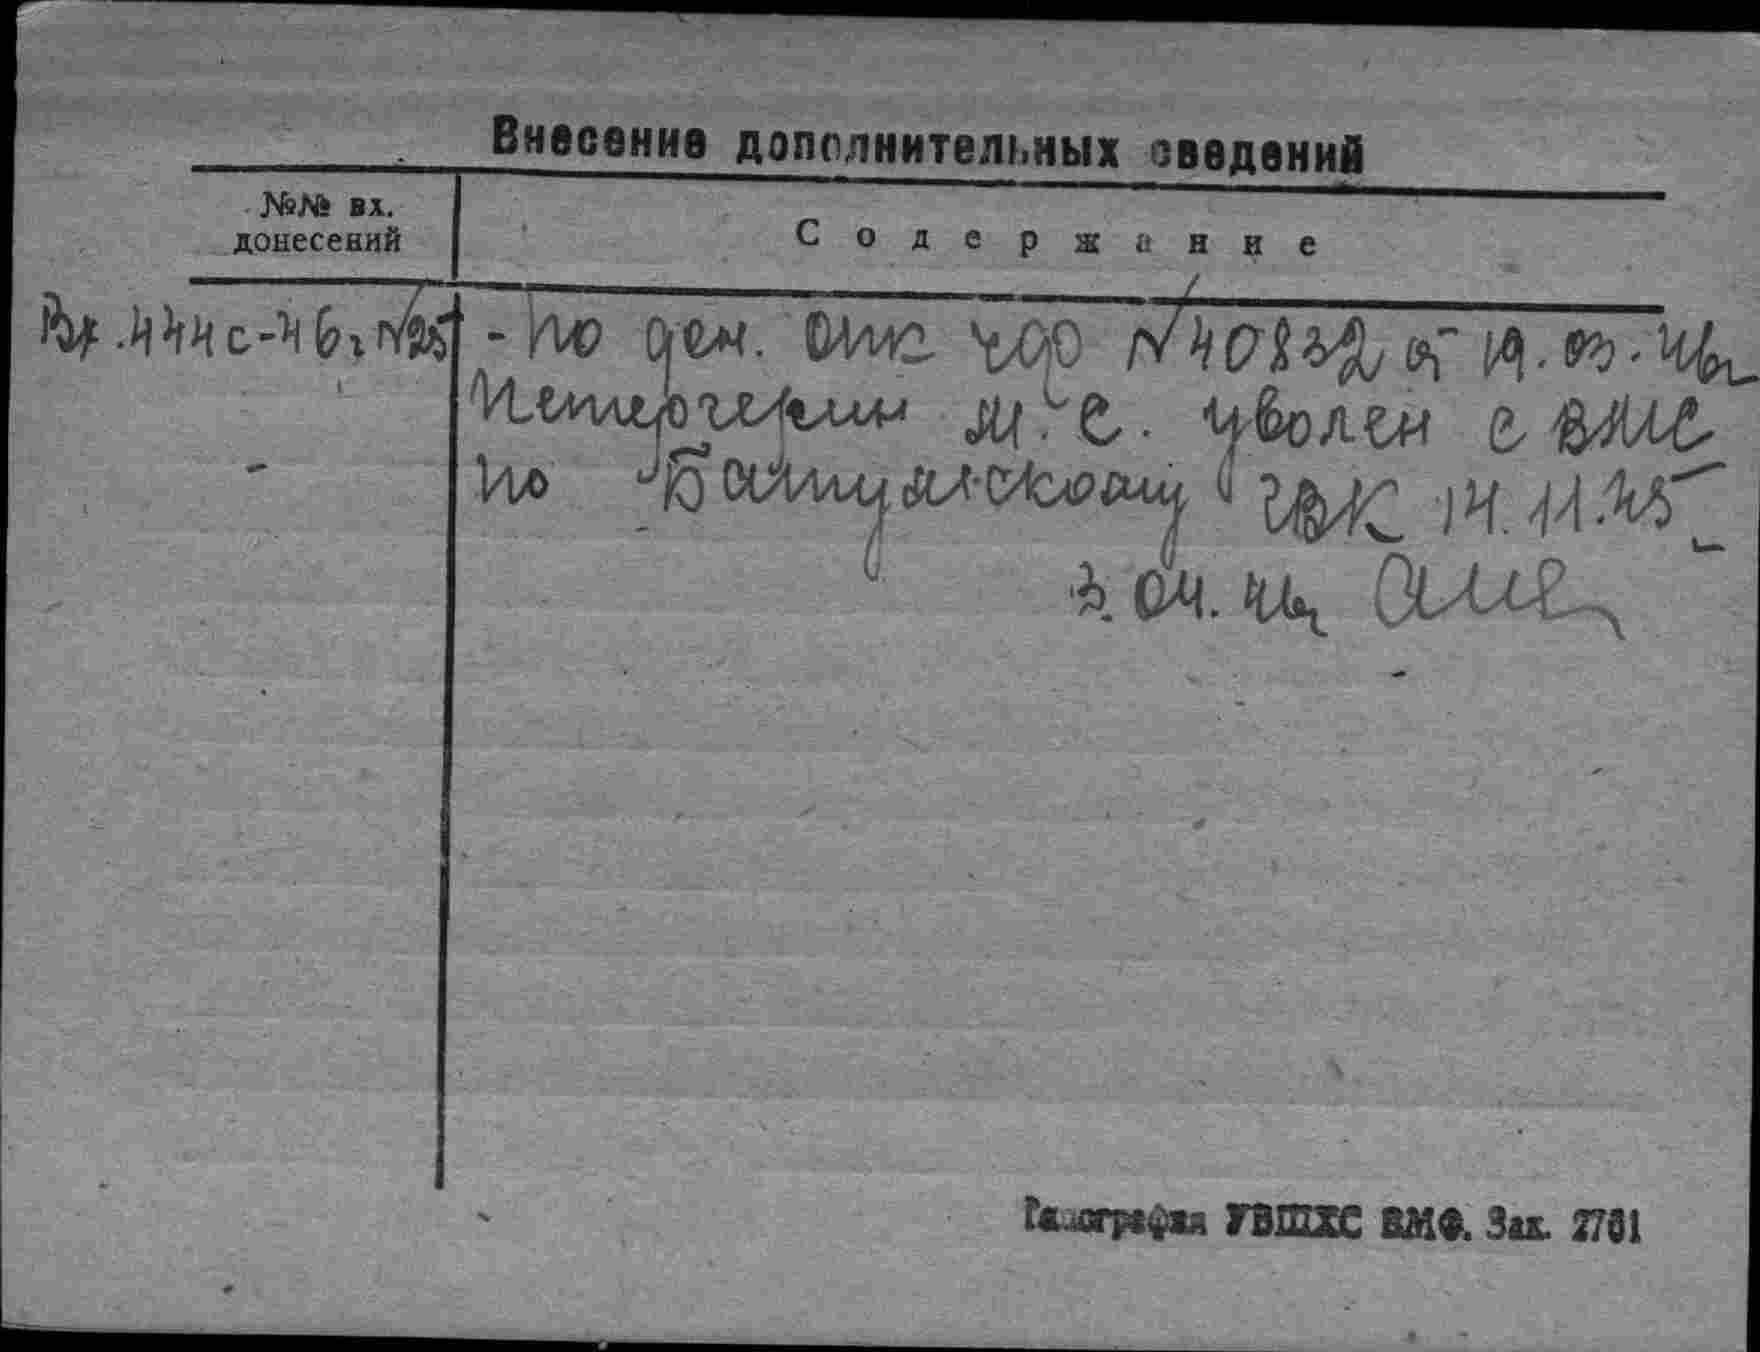 Внесение дополнительных сведений
№№ вх.
донесений
Содержание
Вх.444с-46г №25
- по ден. опк чфо №40832 от 19.03.46г
м.с. уволен с ВМС
по Батумскому ГВК 14.11.45
3.04.46г
Типография УВШХС ВМФ. Зак. 2761